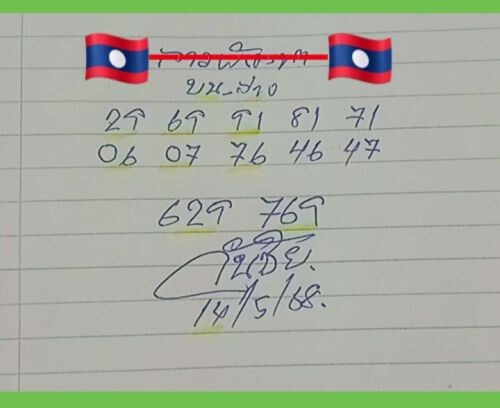 ลาวพัฒนา
บน-ล่าง
29 69 91 81 71
06 07 76 46 47
629 769
14/5/68.